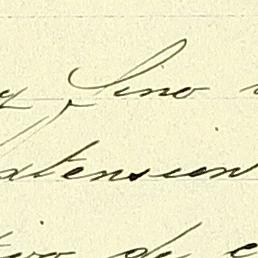 y Sino
extension
tivo de e